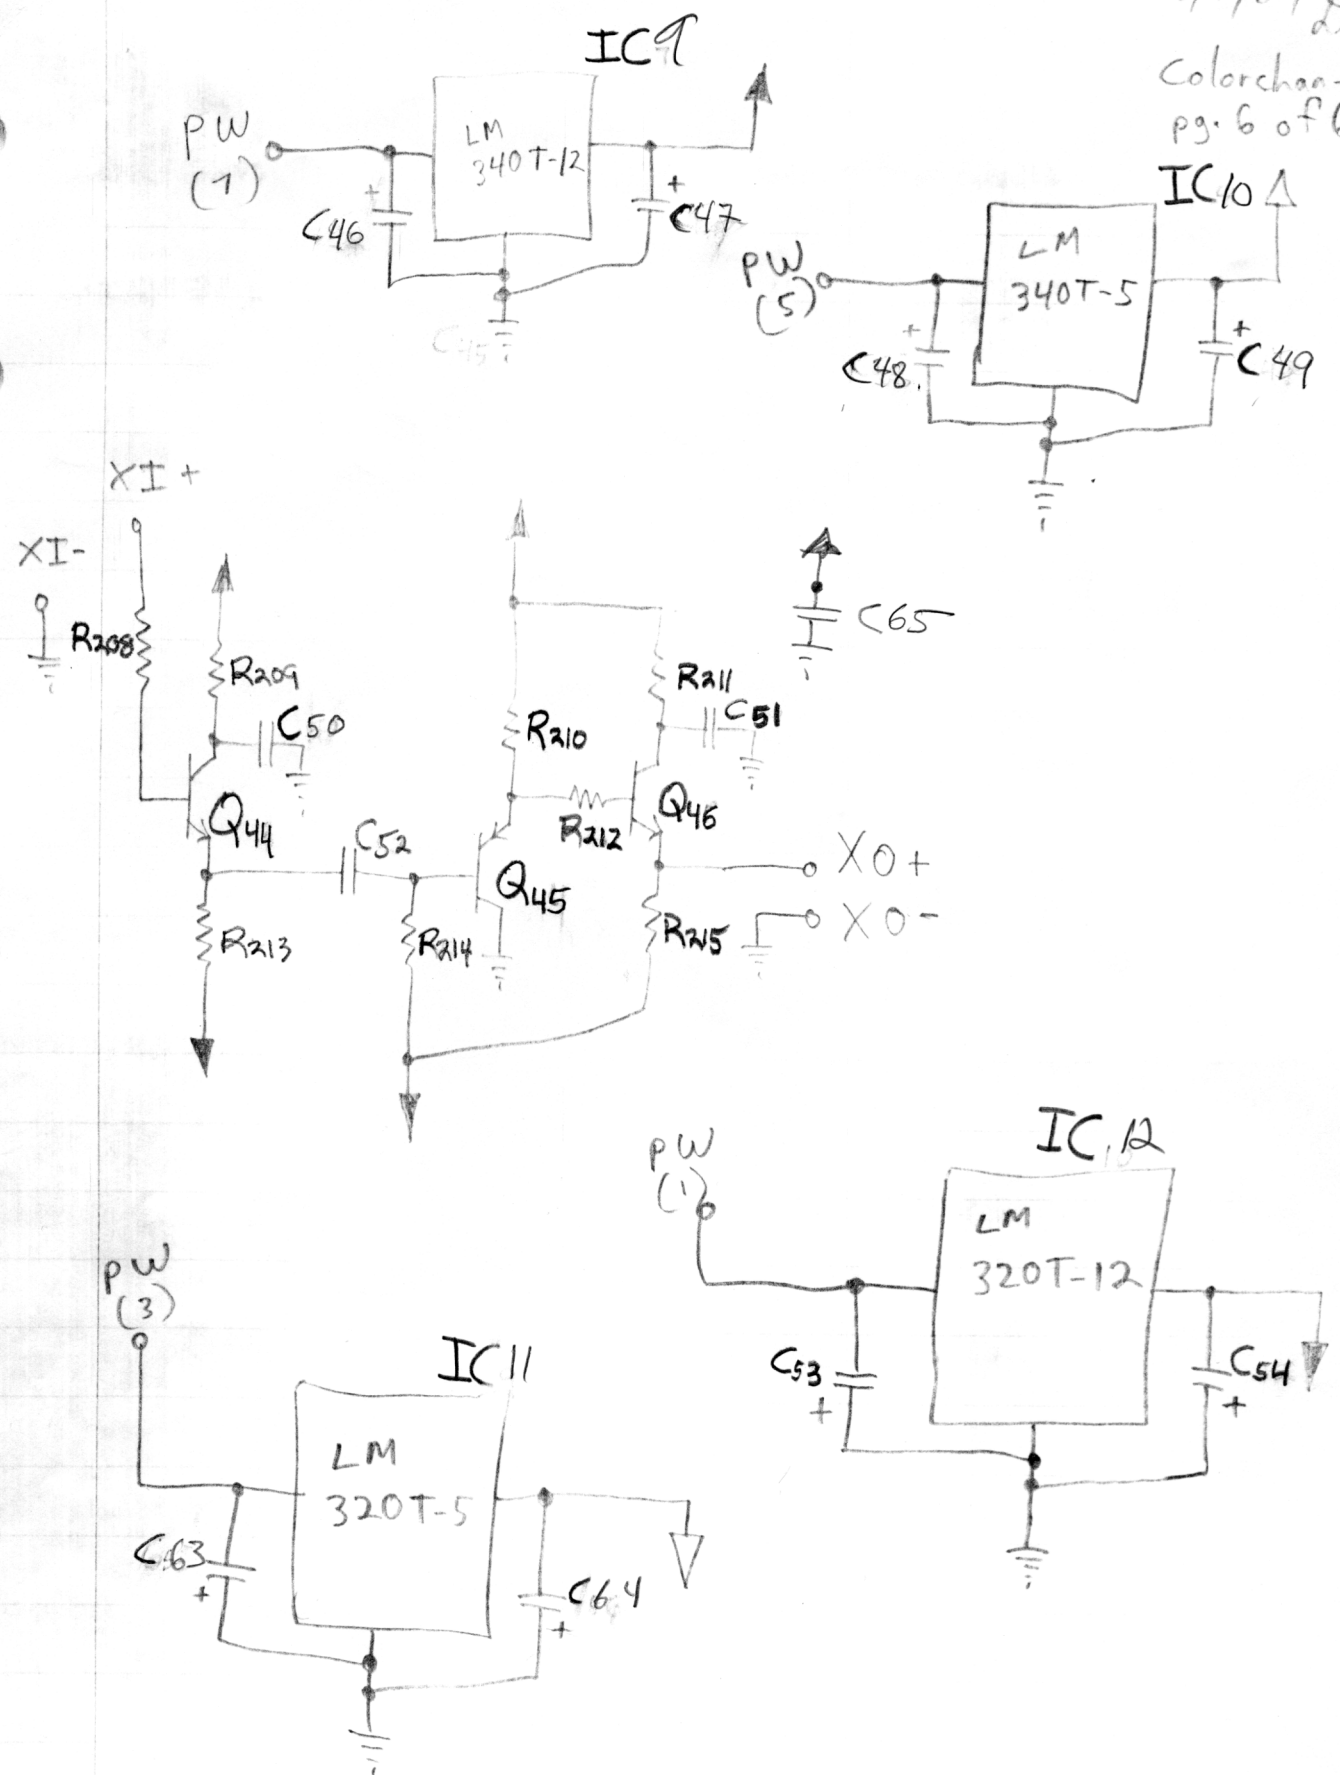 IC9
Colorchan-
pg. 6 of 6
PW
(7)
LM
340T-12
+
C46
+
C47
IC10
PW
(5)
LM
340T-5
+
C48
+
C49
XI+
XI-
R208
R209
C50
Q44
R213
C52
R214
Q45
R210
R212
R211
C51
Q46
R215
XO+
XO-
C65
PW
(1)
IC12
LM
320T-12
C53
+
C54
+
PW
(3)
IC11
LM
320T-5
C63
+
C64
+